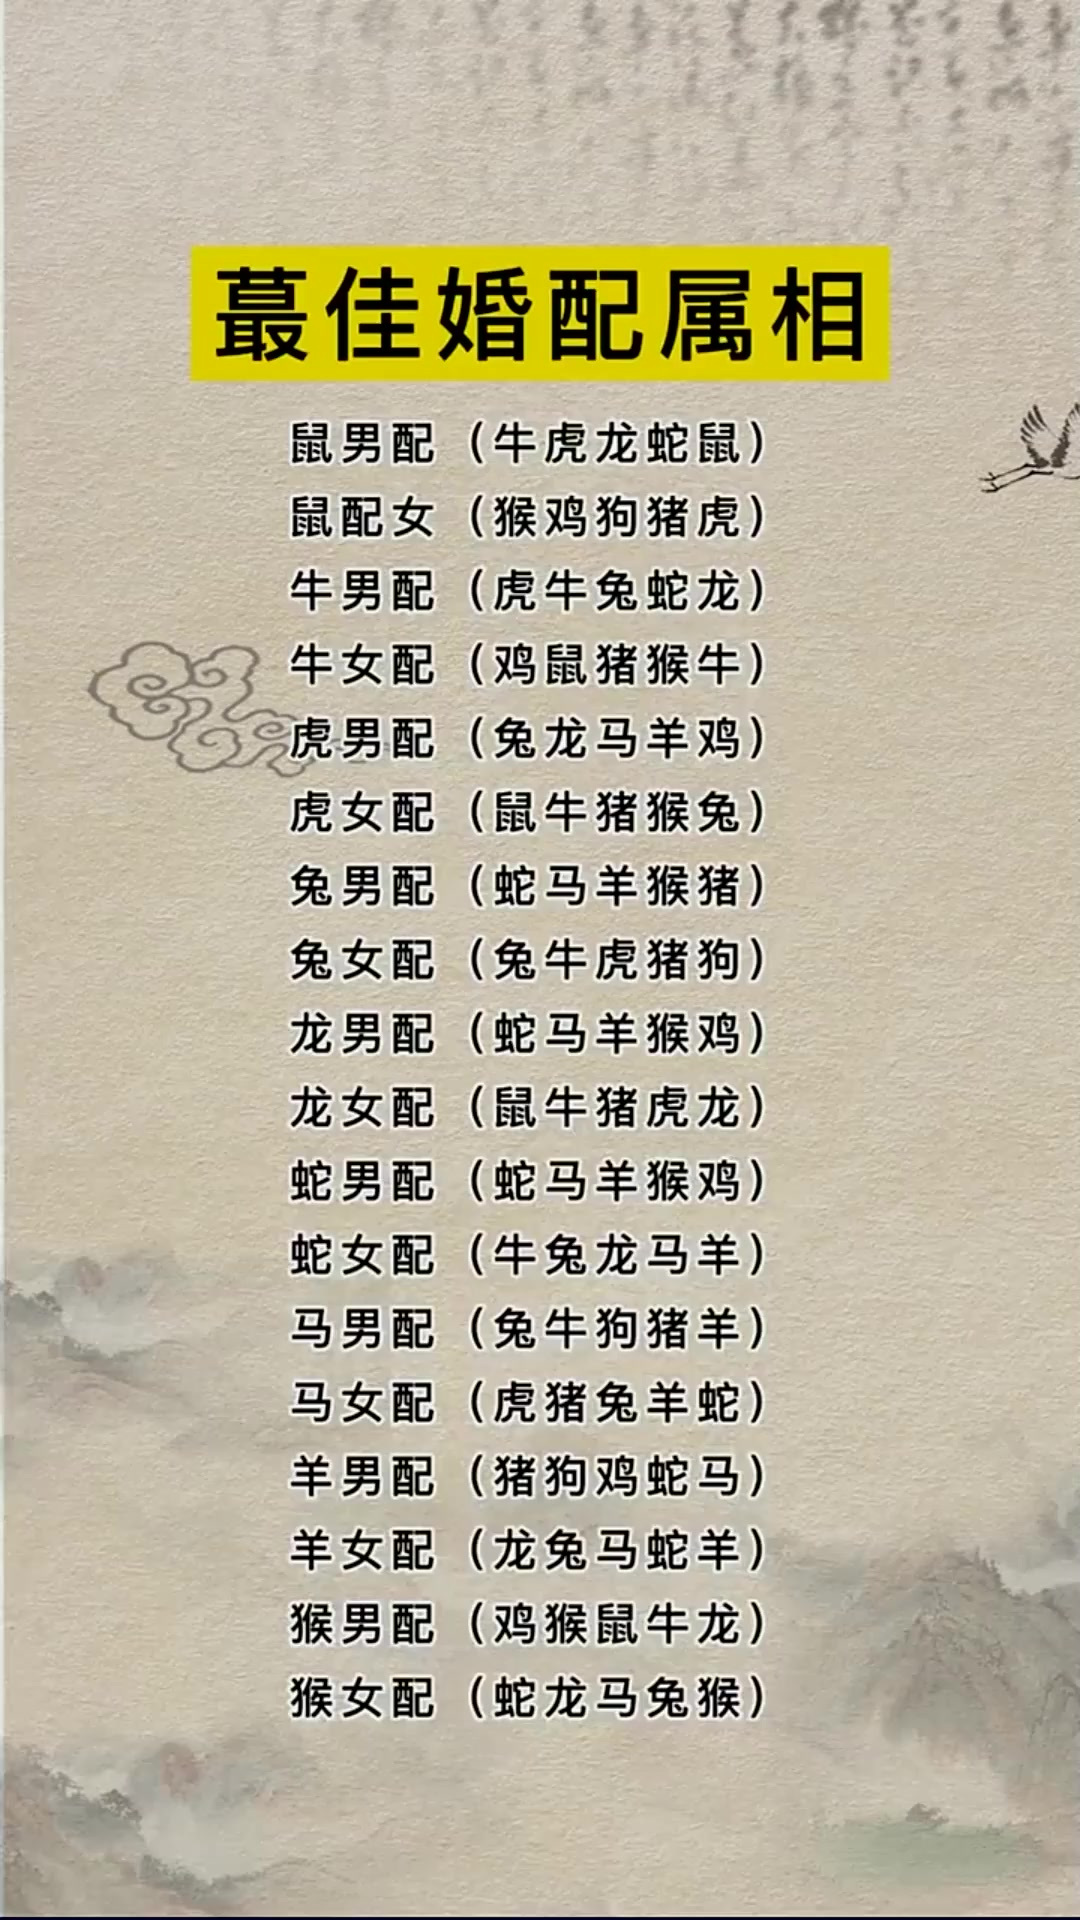 蕞佳婚配属相
鼠男配（牛虎龙蛇鼠）
鼠配女（猴鸡狗猪虎）
牛男配（虎牛兔蛇龙）
牛女配（鸡鼠猪猴牛）
虎男配（兔龙马羊鸡）
虎女配（鼠牛猪猴兔）
兔男配（蛇马羊猴猪）
兔女配（兔牛虎猪狗）
龙男配（蛇马羊猴鸡）
龙女配（鼠牛猪虎龙）
蛇男配（蛇马羊猴鸡）
蛇女配（牛兔龙马羊）
马男配（兔牛狗猪羊）
马女配（虎猪兔羊蛇）
羊男配（猪狗鸡蛇马）
羊女配（龙兔马蛇羊）
猴男配（鸡猴鼠牛龙）
猴女配（蛇龙马兔猴）